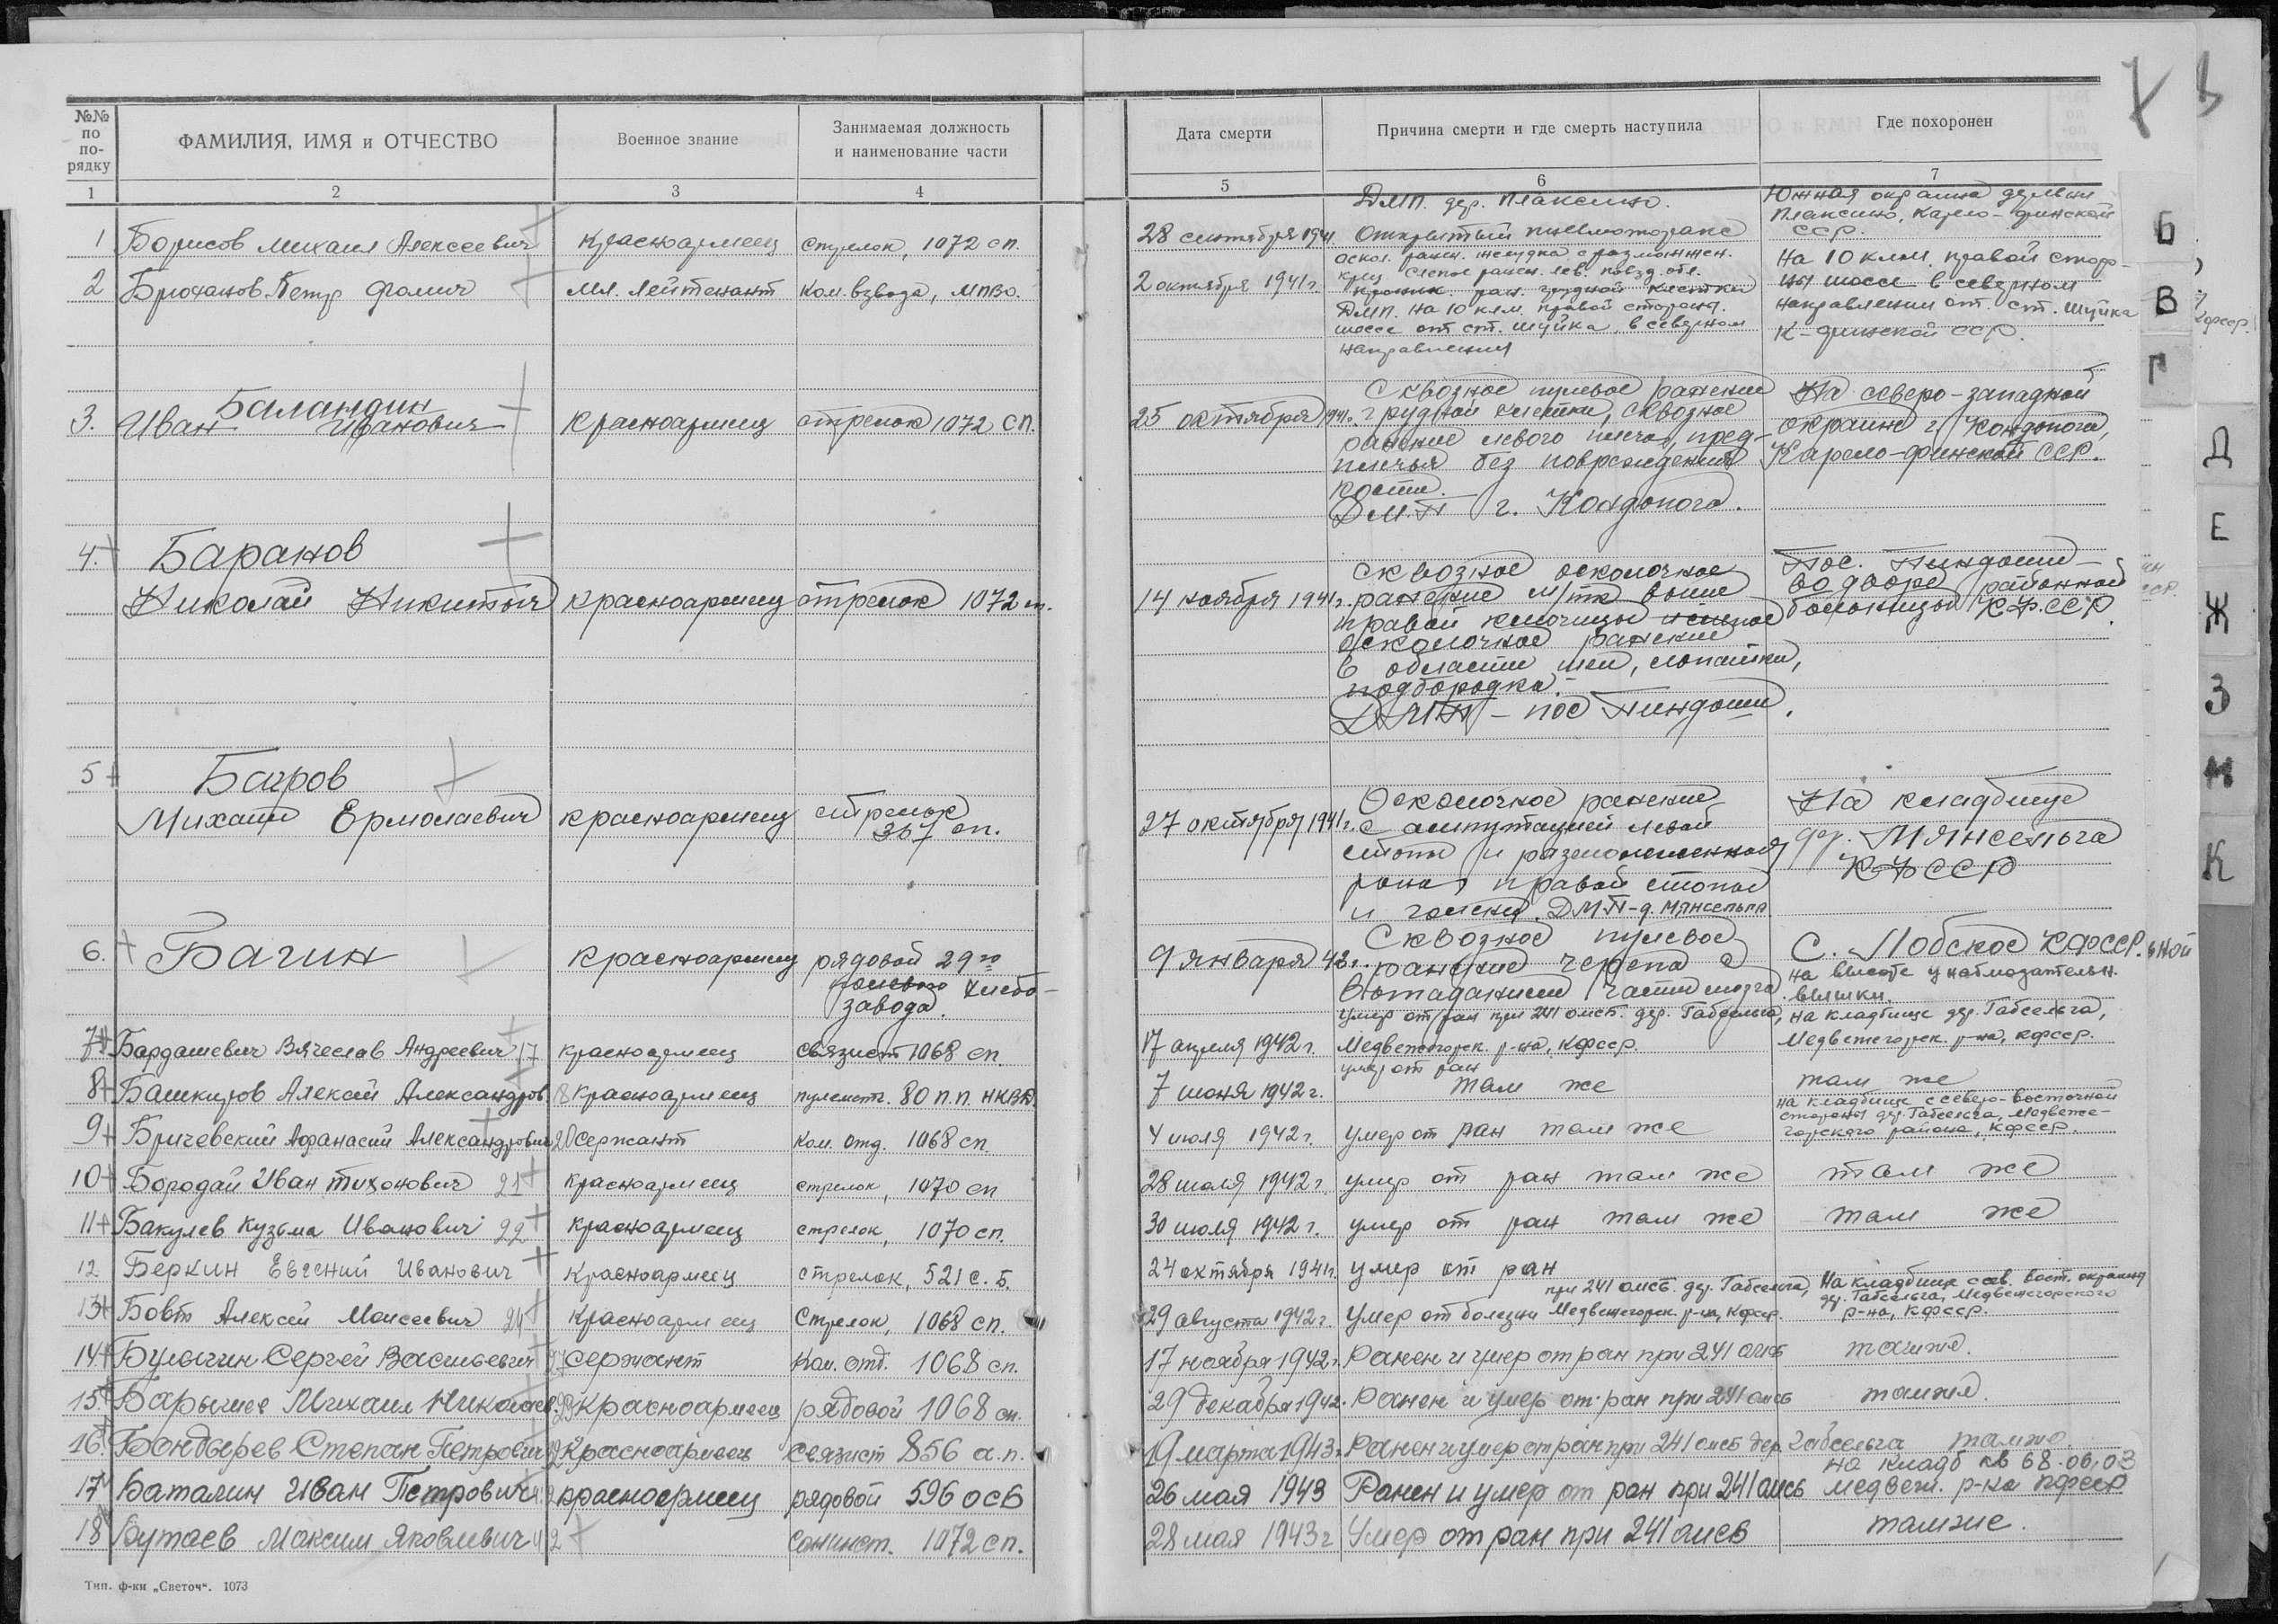 №№ по по-рядку
ФАМИЛИЯ, ИМЯ и ОТЧЕСТВО
Военное звание
Занимаемая должность и наименование части
Дата смерти
Причина смерти и где смерть наступила
Где похоронен
1 2 3 4 5 6 7
1 Борисов Михаил Алексеевич красноармеец стрелок, 1072 сп.
28 сентября 1941
ДМП. дер. Плаксино.
Открытый пневмоторакс
оскол. ранен. желудка с размозжен.
Южная окраина деревни
Плаксино, Карело-финской
ССР.
2 Брюханов Петр Фомич мл. лейтенант ком. взвода, МПВО.
2 октября 1941 г.
Слепое ранен. лев.
проник. ран. грудной клетки
ДМП. на 10 клм. правой стороны.
шоссе от ст. Шуйка, в северном
направлении
На 10 клм. правой сторо-
ны шоссе в северном
направлении от ст. Шуйка
К-финской ССР.
3. Баландин
Иван Иванович красноармеец стрелок 1072 СП.
25 октября 1941 г.
Сквозное пулевое ранение
грудной клетки, сквозное
ранение левого плеча, пред-
плечья без повреждения
кости.
ДМП г. Кондопога.
На северо-западной
окраине г. Кондопога,
Карело-финской ССР.
4. Баранов
Николай Никитич красноармеец стрелок 1072 сп.
14 ноября 1941 г.
Сквозное осколочное
ранение м/тк выше
правой ключицы
осколочное ранение
в области шеи, лопатки,
подбородка.
ДМП – пос Пиндоши.
Пос. Пиндоши –
во дворе районной
больницы К.Ф.ССР.
5 Багров
Михаил Ермолаевич красноармеец стрелок
367 сп.
27 октября 1941 г.
Осколочное ранение
с ампутацией левой
стопы и размозженная
рана правой стопы
и голени. ДМП – д. Мянсельга
На кладбище
дер. Мянсельга
КФССР
6. Багин красноармеец рядовой 29го
полевого хлебо-
завода.
9 января 42 г.
Сквозное пулевое
ранение черепа с
выпаданием части мозга.
С. Лобское КФССР.
на высоте у наблюдательн.
вышки.
7 Бардашевич Вячеслав Андреевич 17 красноармеец связист 1068 сп.
17 апреля 1942 г.
Умер от ран при 241 омсб. дер. Габсельга,
Медвежегорск. р-на, КФССР.
на кладбище дер. Габсельга,
Медвежегорск. р-на, КФССР.
8 Башкиров Алексей Александров. 18 красноармеец пулеметч. 80 п.п. НКВД.
7 июня 1942 г.
умер от ран
там же
там же
9 Бричевский Афанасий Александрович 20 сержант ком. отд. 1068 сп.
4 июля 1942 г. умер от ран там же
на кладбище с северо-восточной
стороны дер. Габсельга, Медвеже-
горского района, КФССР.
10 Бородай Иван Тихонович 21 красноармеец стрелок, 1070 сп
28 июля 1942 г. умер от ран там же там же
11 Бакулев Кузьма Иванович 22 красноармеец стрелок, 1070 сп.
30 июля 1942 г. умер от ран там же там же
12 Беркин Евгений Иванович красноармеец стрелок, 521 с.б.
24 октября 1941 г. умер от ран
13 Бовт Алексей Моисеевич 24 красноармеец стрелок, 1068 сп.
29 августа 1942 г. умер от болезни
при 241 омсб. дер. Габсельга,
Медвежегорск. р-на, КФССР.
На кладбище с сев. вост. окраины
дер. Габсельга, Медвежегорского
р-на, КФССР.
14 Булыгин Сергей Васильевич 27 сержант Ком. отд. 1068 сп.
17 ноября 1942 г. Ранен и умер от ран при 241 омсб там же.
15. Барышев Михаил Николаев. красноармеец рядовой 1068 сп.
29 декабря 1942. Ранен и умер от ран при 241 омсб там же.
16. Бондырев Степан Петрович красноармеец связист 856 а.п.
19 марта 1943 г. Ранен и умер от ран при 241 омсб дер. Габсельга там же.
17 Баталин Иван Петрович красноармеец рядовой 596 осб
26 мая 1943 Ранен и умер от ран при 241 омсб
на кладб кв 68.06.03
медвеж. р-на КФССР
18 Бутаев Максим Яковлевич санинст. 1072 сп.
28 мая 1943 г Умер от ран при 241 омсб там же.
Тип. ф-ки „Светоч“. 1073
Б
В
Г
Д
Е
Ж
З
И
К